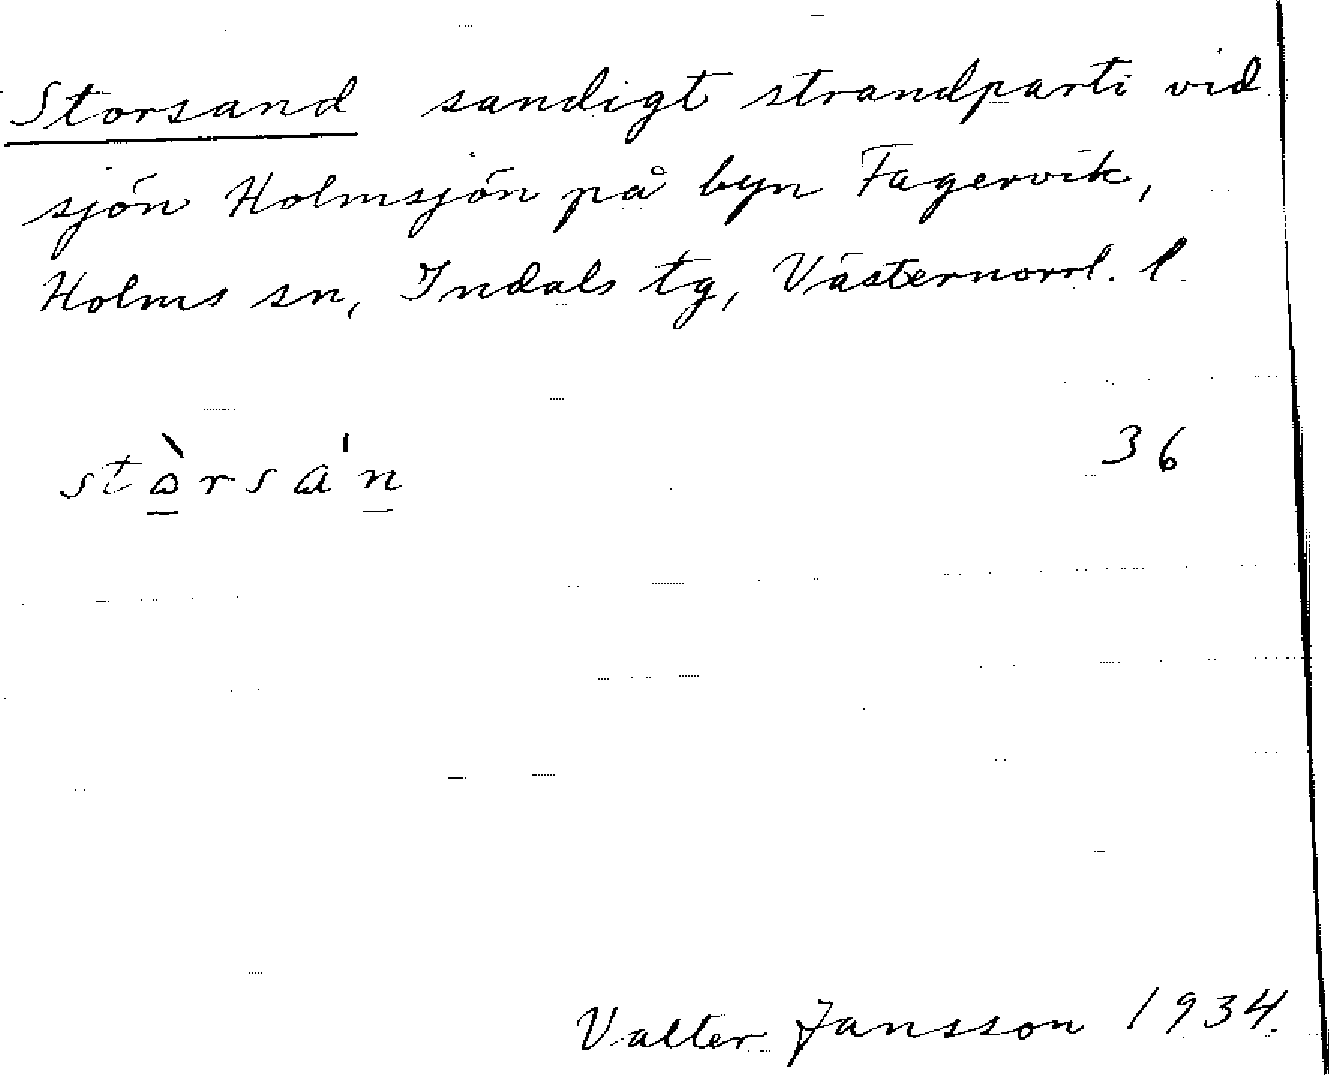 Storsand sandigt strandparti vid
sjön Holmsjön på byn Fagervik,
Holms sn, Indals tg, Västernorrl. l.
stò̱rsa'ṉ 36
Valter Jansson 1934.